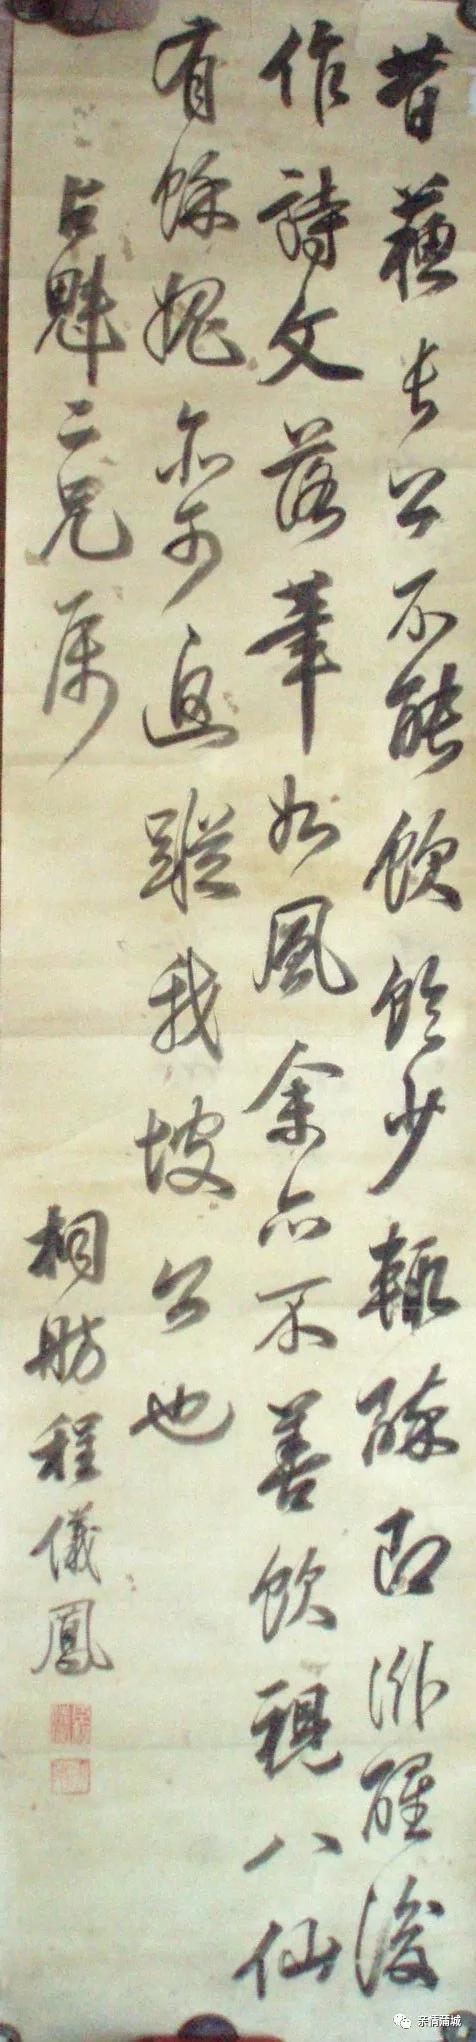 昔蘓長公不能飲飲少輒醉即卧醒後
作詩文落筆如風余亦不善飲視八仙
有餘媿亦可追蹤我坡公也
占魁二兄属
桐舫程儀鳳
亲情蒲城